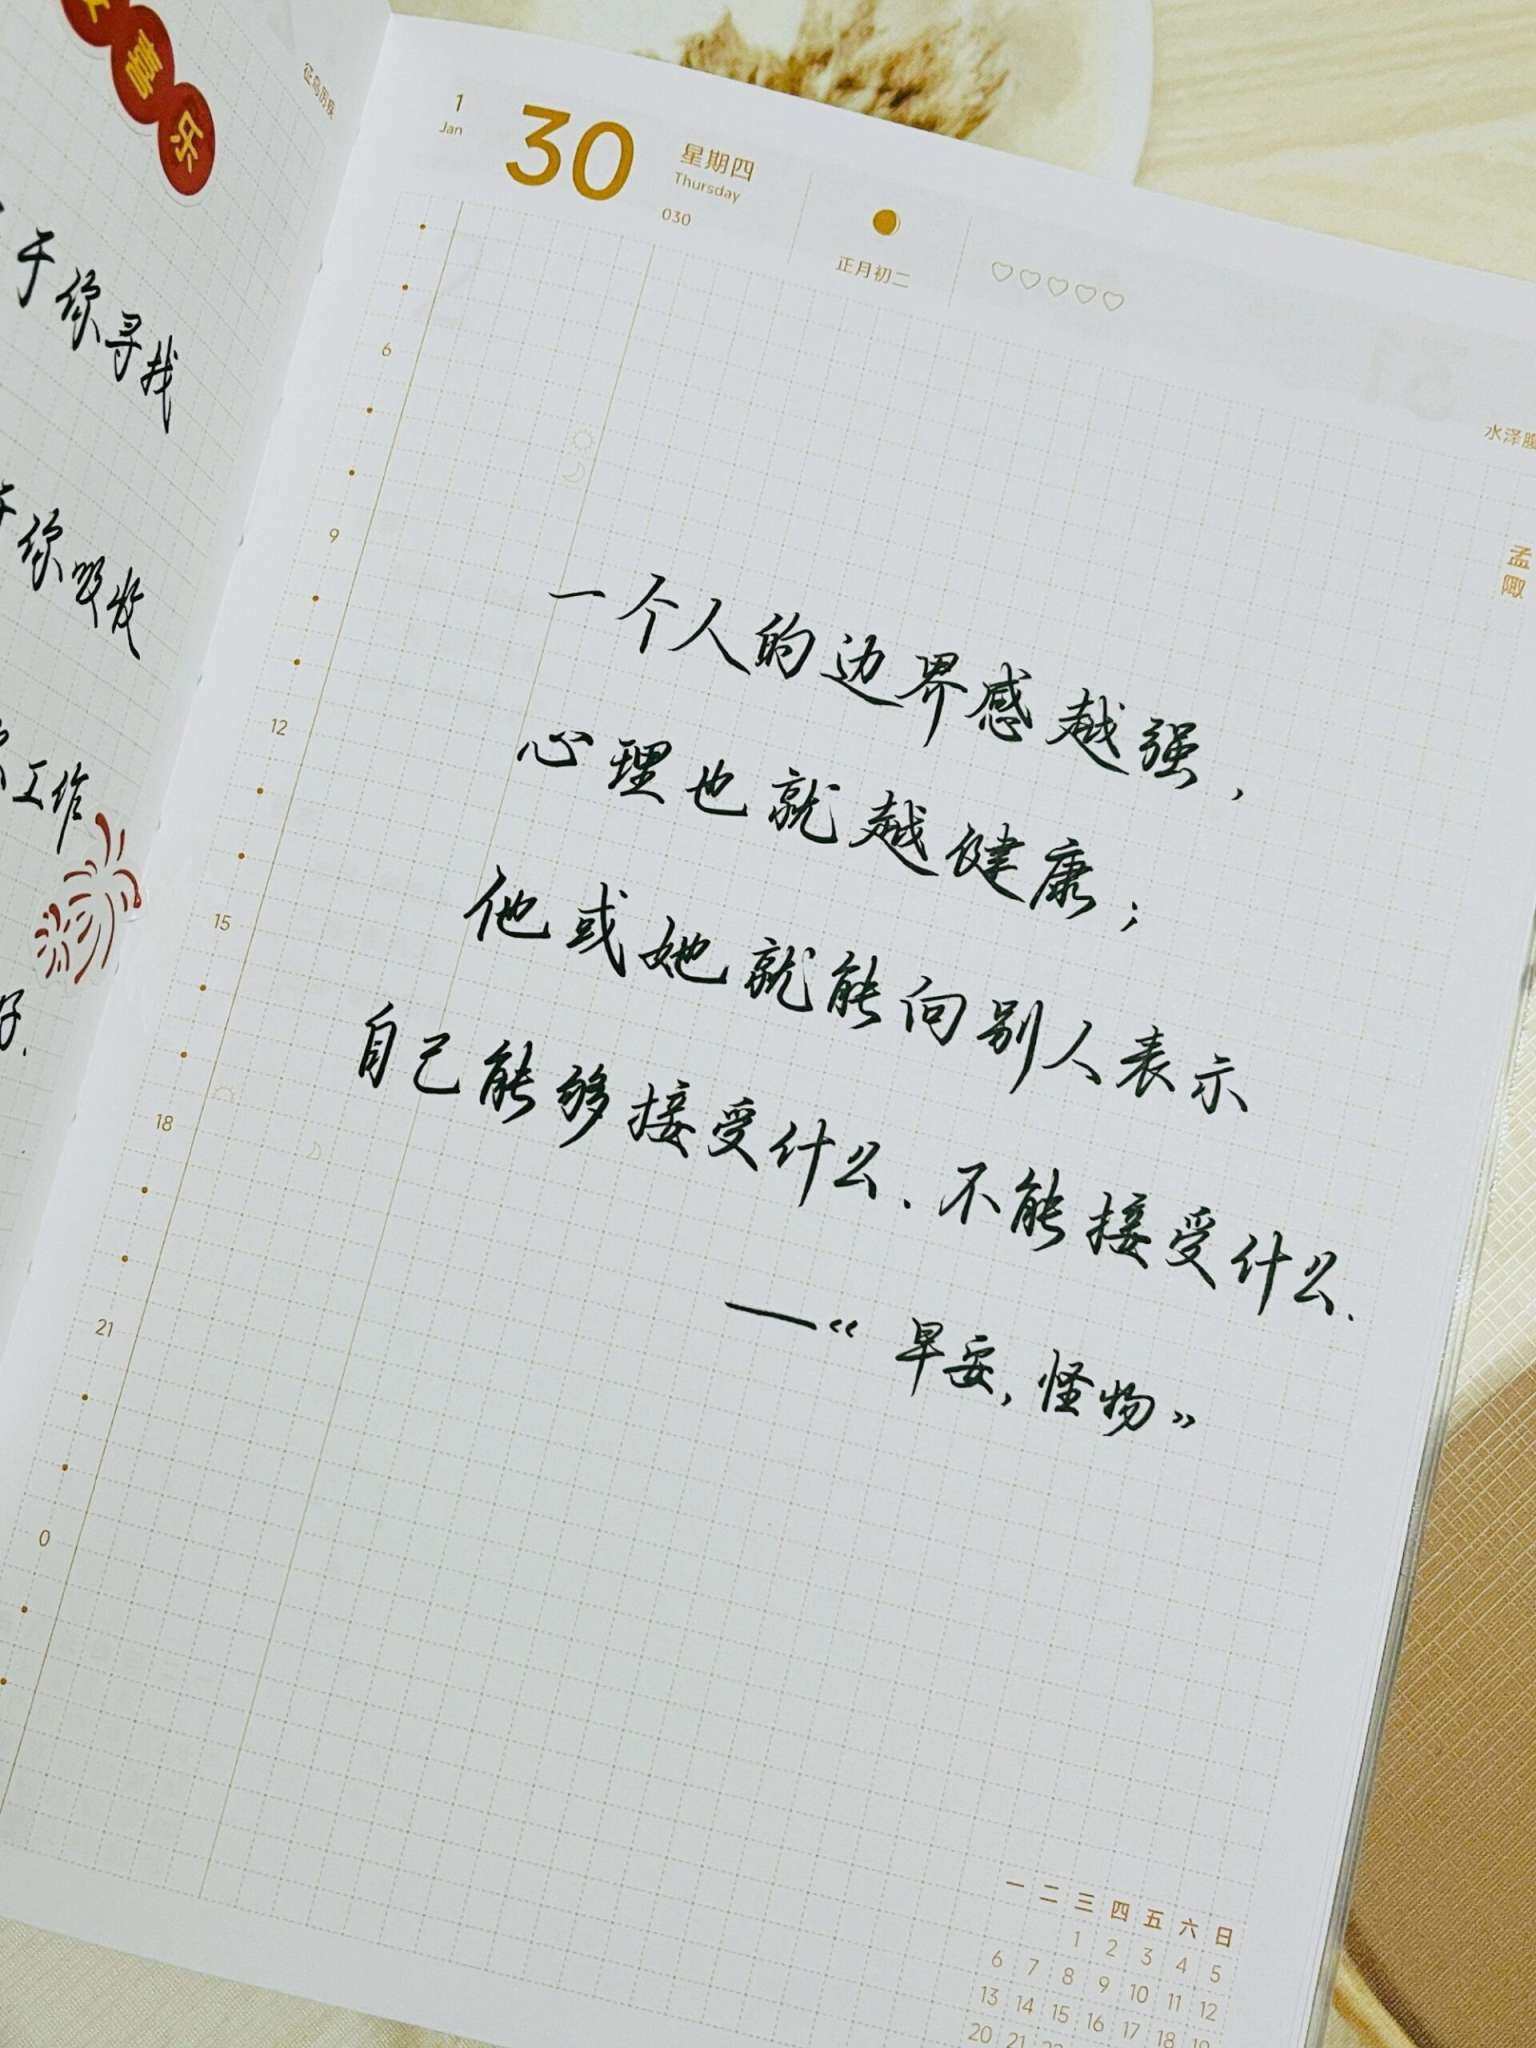 喜
乐
征鸟厉疾
于你寻找
于你吸收
工作
好.
1
Jan
30
星期四
Thursday
030
正月初二
水泽腹
孟陬
6
9
12
15
18
21
0
一个人的边界感越强,
心理也就越健康;
他或她就能向别人表示
自己能够接受什么.不能接受什么.
——《早安,怪物》
一 二 三 四 五 六 日
1 2 3 4 5
6 7 8 9 10 11 12
13 14 15 16 17 18 19
20 21 22